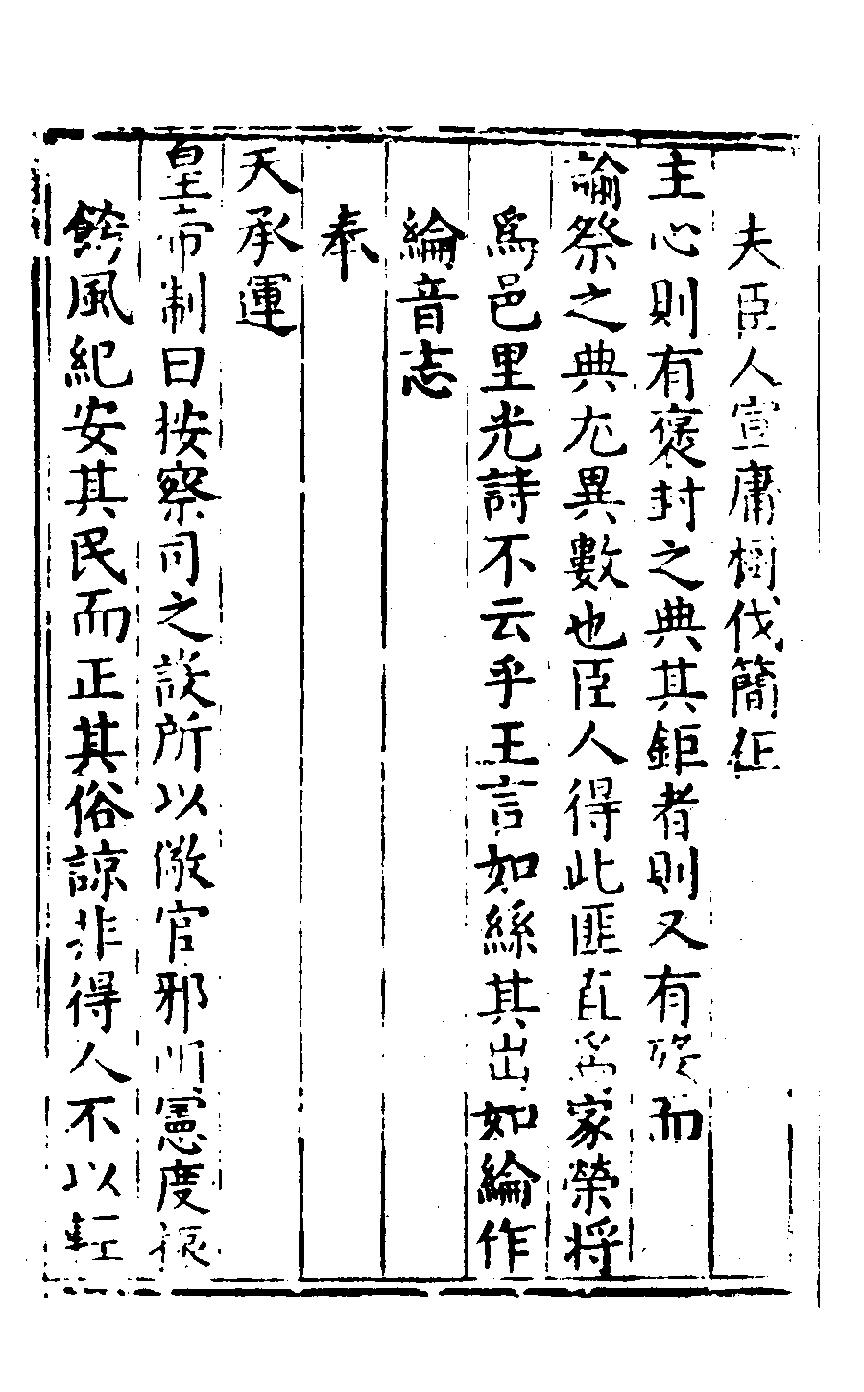 夫臣人宣庸樹伐簡在
主心則有褒封之典其鉅者則又有歿而
諭祭之典尤異數也臣人得此匪直爲家榮將
爲邑里光詩不云乎王言如絲其出如綸作
綸音志
奉
天承運
皇帝制曰按察司之設所以儆官邪明憲度振
飭風紀安其民而正其俗諒非得人不以輕